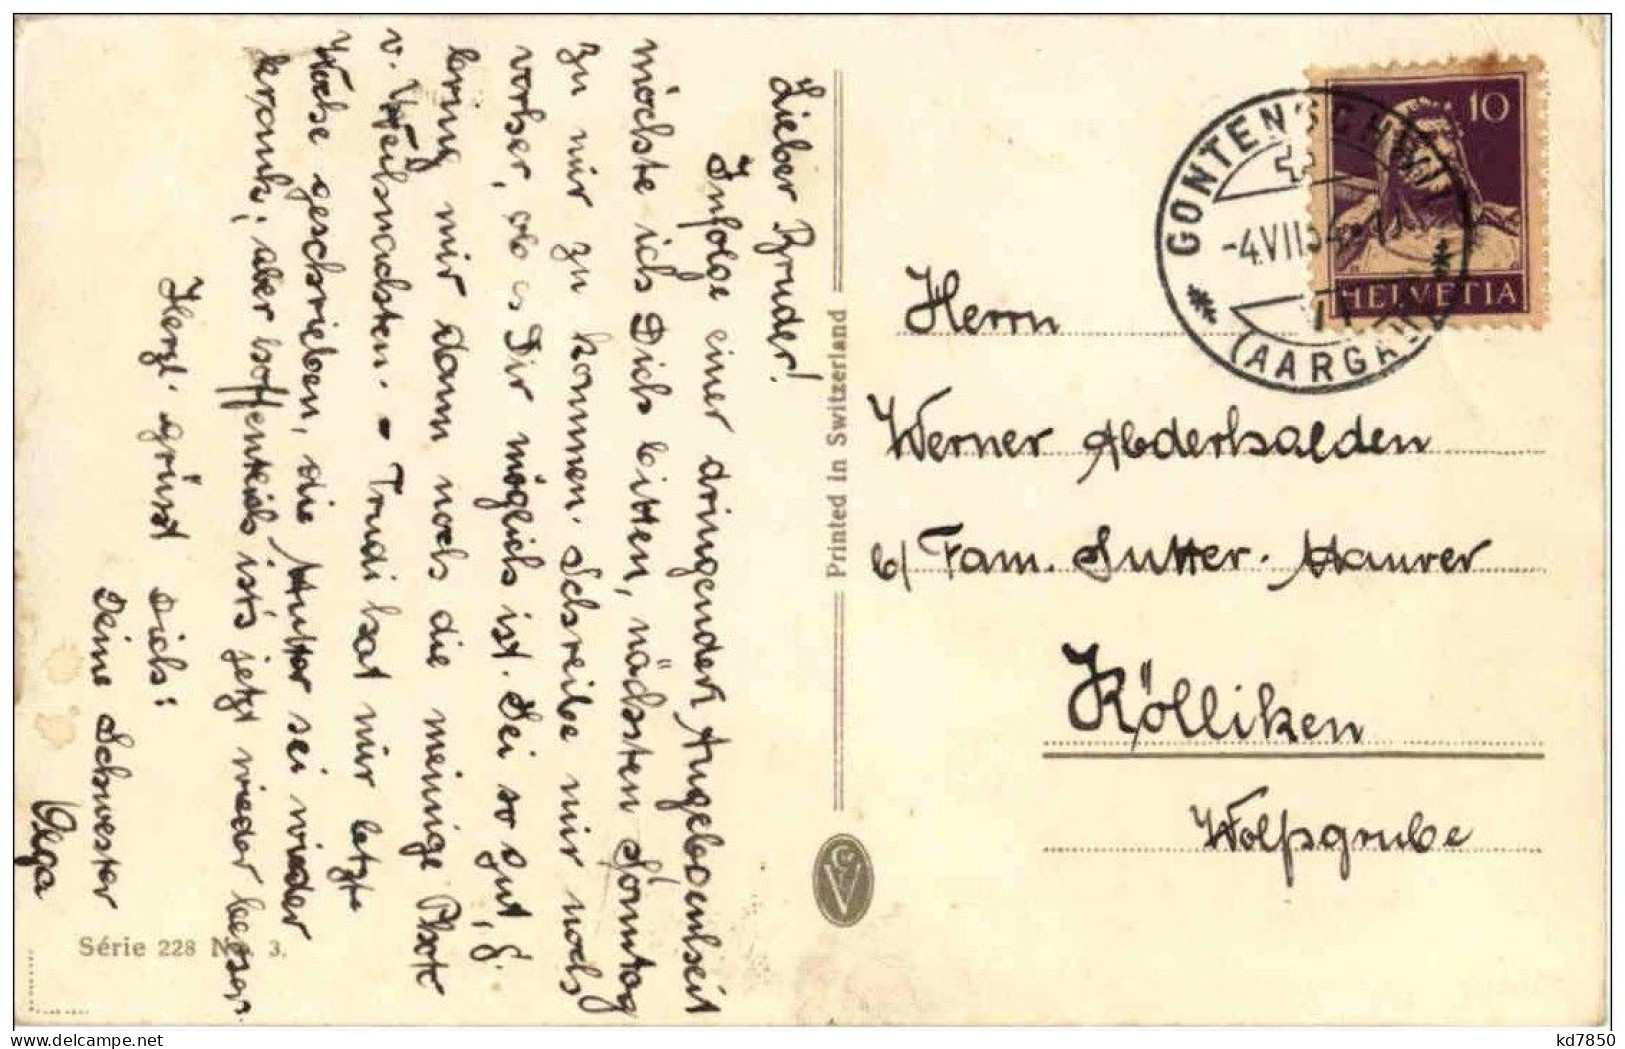 Lieber Bruder!
Infolge einer dringenden Angelegenheit
möchte ich Dich bitten, nächsten Sonntag
zu mir zu kommen. Schreibe mir noch
vorher, ob es Dir möglich ist. Sei so gut,
bring mir dann noch die meinige Photo
v. Weihnachten. – Trudi hat mir letzte
Woche geschrieben, die Mutter sei wieder
krank; aber hoffentlich ist's jetzt wieder besser.
Herzl. grüsst Dich:
Deine Schwester
Olga
Série 228 No. 3.
Printed in Switzerland
10
HELVETIA
GONTENSCHWIL
-4.VII.34
(AARGAU)
Herrn
Werner Abderhalden
b/ Fam. Sutter-Maurer
Kölliken
Wolfsgrube
kd7850
www.delcampe.net